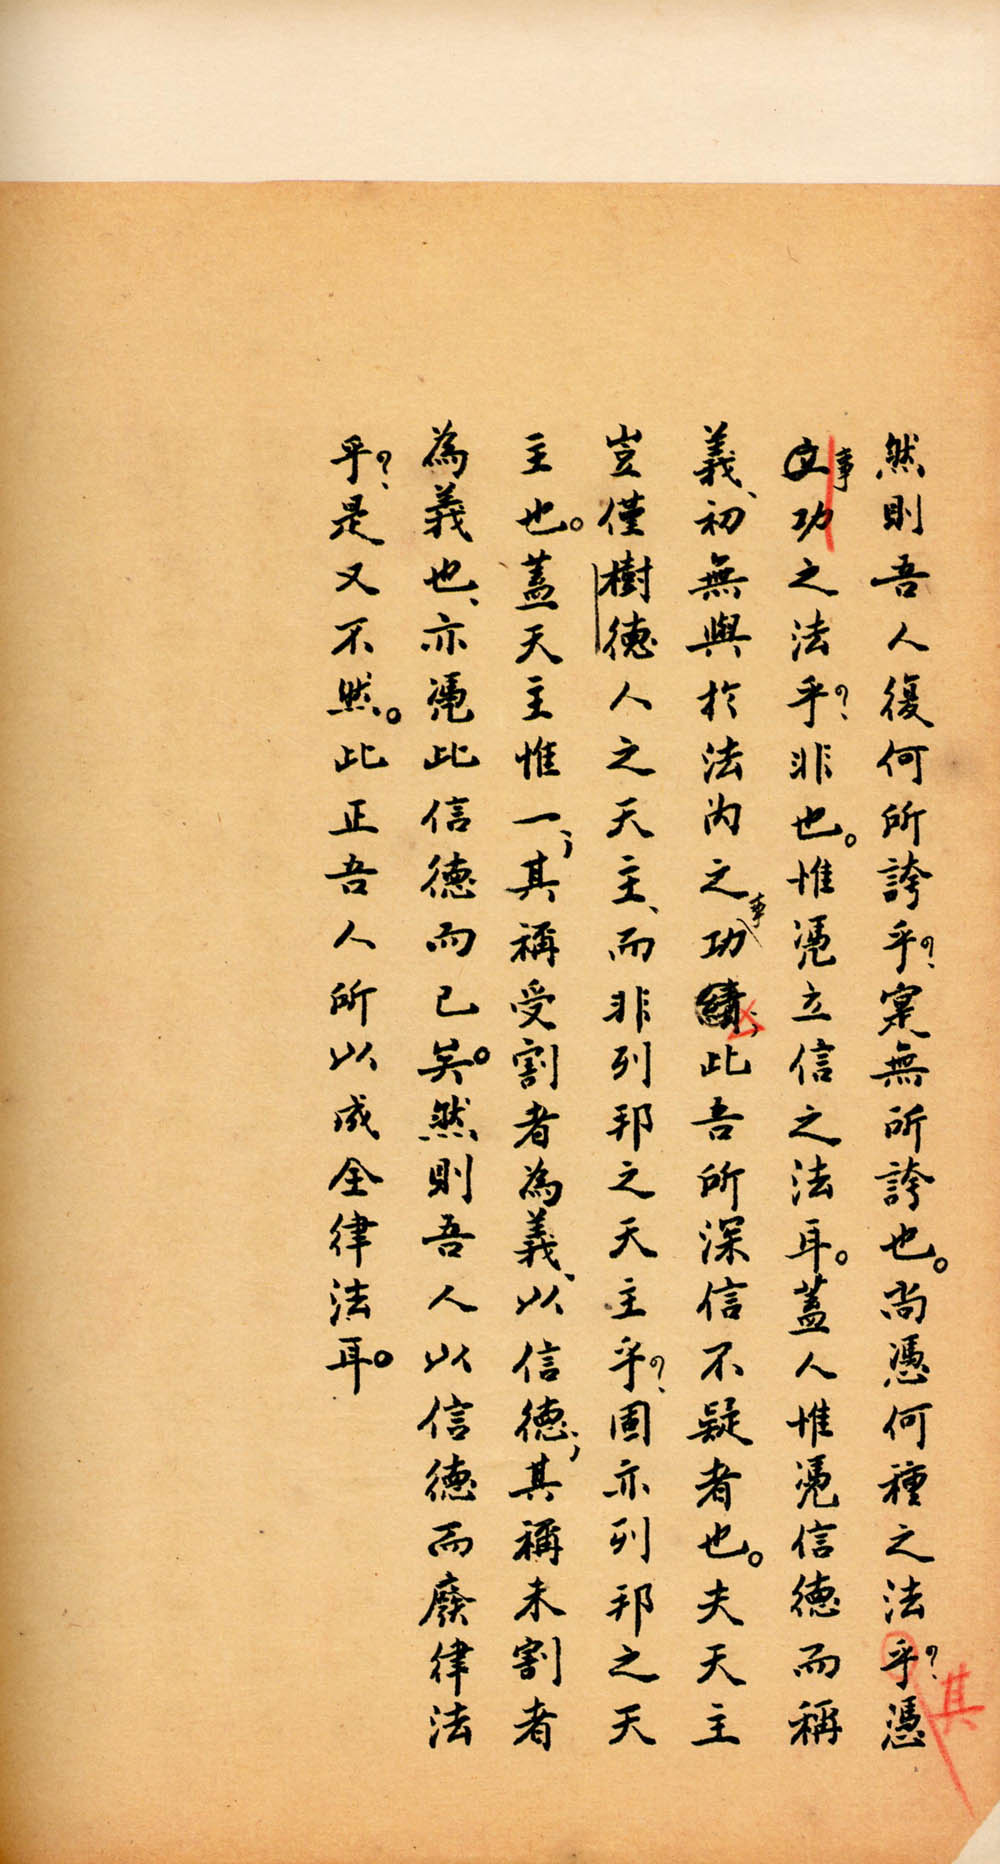 然則吾人復何所誇乎?窠無所誇也。尚憑何種之法乎?憑其
立功事之法乎?非也。惟凴立信之法耳。蓋人惟凴信德而稱
義、初無與於法內之功事績;此吾所深信不疑者也。夫天主
豈僅樹德人之天主、而非列邦之天主乎?固亦列邦之天
主也。蓋天主惟一;其稱受割者為義、以信德;其稱未割者
為義也、亦凴此信德而已矣。然則吾人以信德而廢律法
乎?是又不然。此正吾人所以成全律法耳。